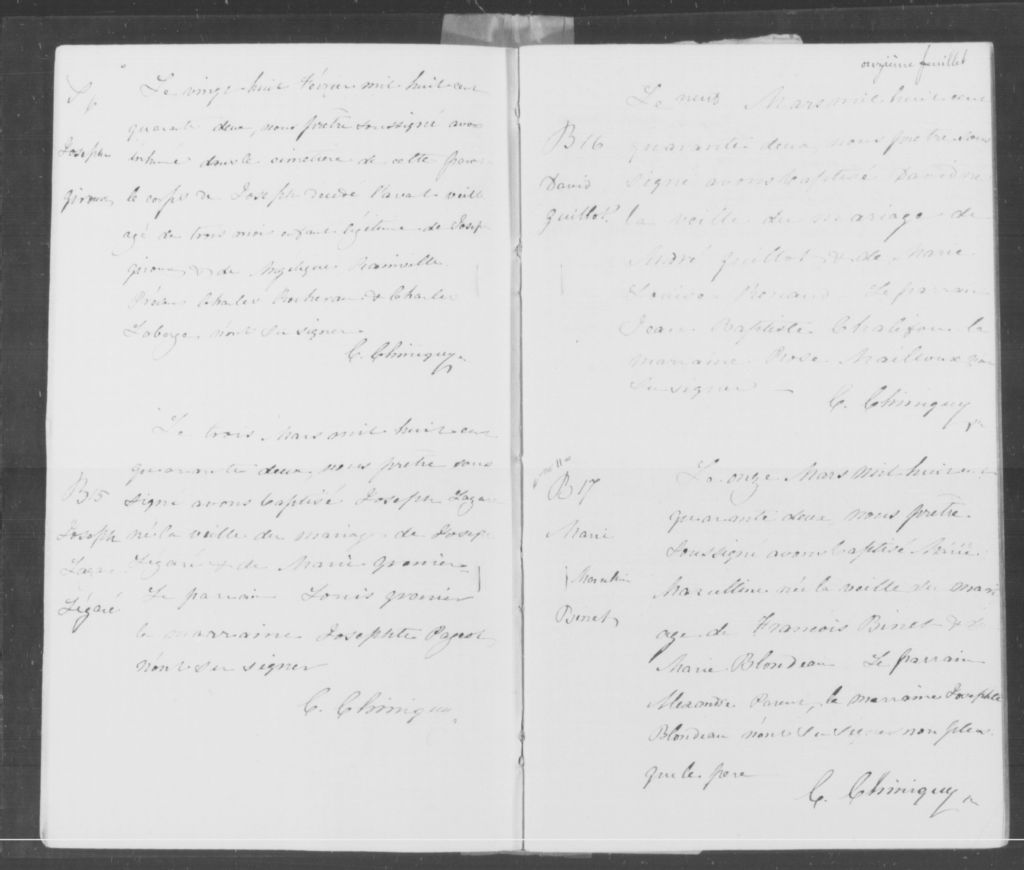 S 6
Joseph
Giroux
Le vingt huit Février mil huit cent
quarante deux, nous prêtre soussigné avons
inhumé dans le cimetière de cette paroisse
le corps de Joseph décédé l'avant veille
agé de trois mois enfant légitime de Joseph
giroux & de Angelique Rainville
Présens Charles & Charles
Laberge, n'ont su signer.
C. Chiniquy, ptr
B15
Joseph
Lazare
Légaré
Le trois Mars mil huit cent
quarante deux, nous prêtre sous
signé avons baptisé Joseph Lazare
né la veille du mariage de Joseph
Légaré & de Marie grenier
Le parrain Louis grenier
la marraine Josephte Pageot
n'ont su signer
C. Chiniquy
onzième feuillet
B16
David
guillot
Le neuf Mars mil huit cent
quarante deux, nous prêtre sous
signé avons baptisé David né
la veille du mariage de
André guillot & de Marie
Louise Renaud Le parrain
Jean Baptiste Chalifou la
marraine Rose Mailloux
su signer
C. Chiniquy ptr
B17
Marie
Marcelline
Binet
Le onze Mars mil huit cent
quarante deux nous prêtre
soussigné avons baptisé Marie
Marcelline née la veille du mari
age de Francois Binet & de
Marie Blondeau Le parrain
Alexandre Parent, la marraine Josephte
Blondeau n'ont su signer non plus
que le pere
C. Chiniquy ptr